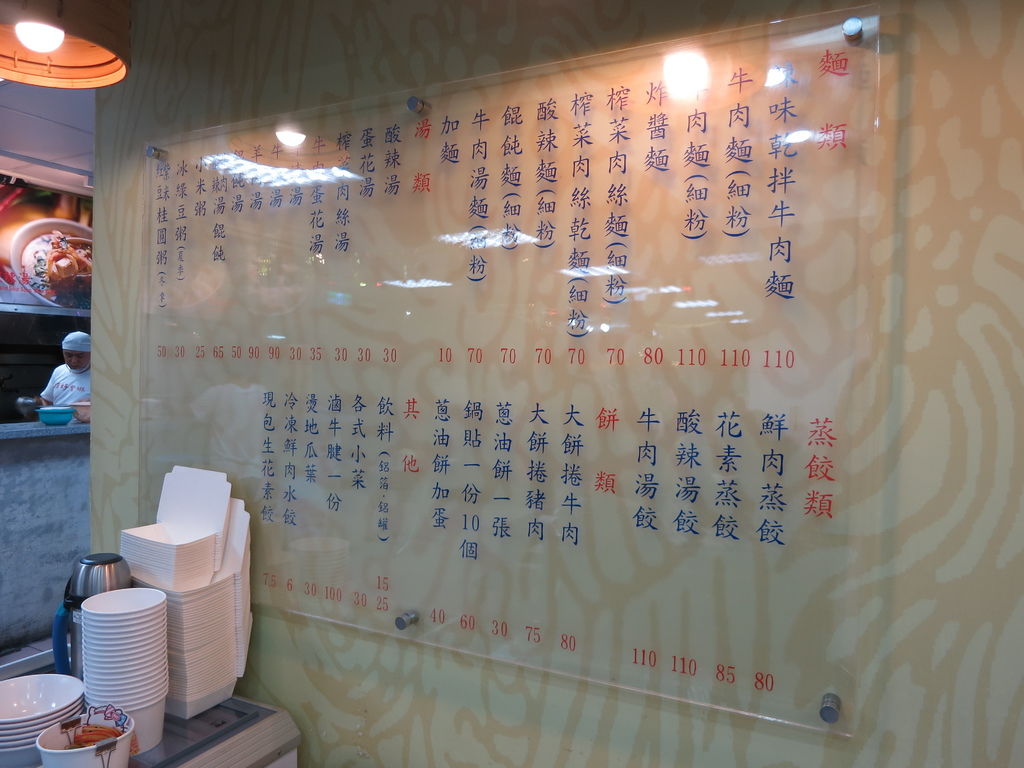 麵類
辣味乾拌牛肉麵 110
牛肉麵(細粉) 110
牛肉麵(細粉) 110
炸醬麵 80
榨菜肉絲麵(細粉) 70
榨菜肉絲乾麵(細粉) 70
酸辣麵(細粉) 70
餛飩麵(細粉) 70
牛肉湯麵(細粉) 70
加麵 10
湯類
酸辣湯 30
蛋花湯 30
榨菜肉絲湯 30
牛肉蛋花湯 35
牛 湯 30
牛 湯 90
羊 湯 90
餛飩湯 50
湯餛飩 65
小米粥 25
冰綠豆粥(夏季) 30
豆味桂圓粥(冬季) 50
蒸餃類
鮮肉蒸餃 80
花素蒸餃 85
酸辣湯餃 110
牛肉湯餃 110
餅類
大餅捲牛肉 80
大餅捲豬肉 75
蔥油餅一張 30
鍋貼一份10個 60
蔥油餅加蛋 40
其他
飲料(鋁箔.鋁罐) 15 25
各式小菜 30
滷牛腱一份 100
燙地瓜葉 30
冷凍鮮肉水餃 6
現包生花素餃 7.5